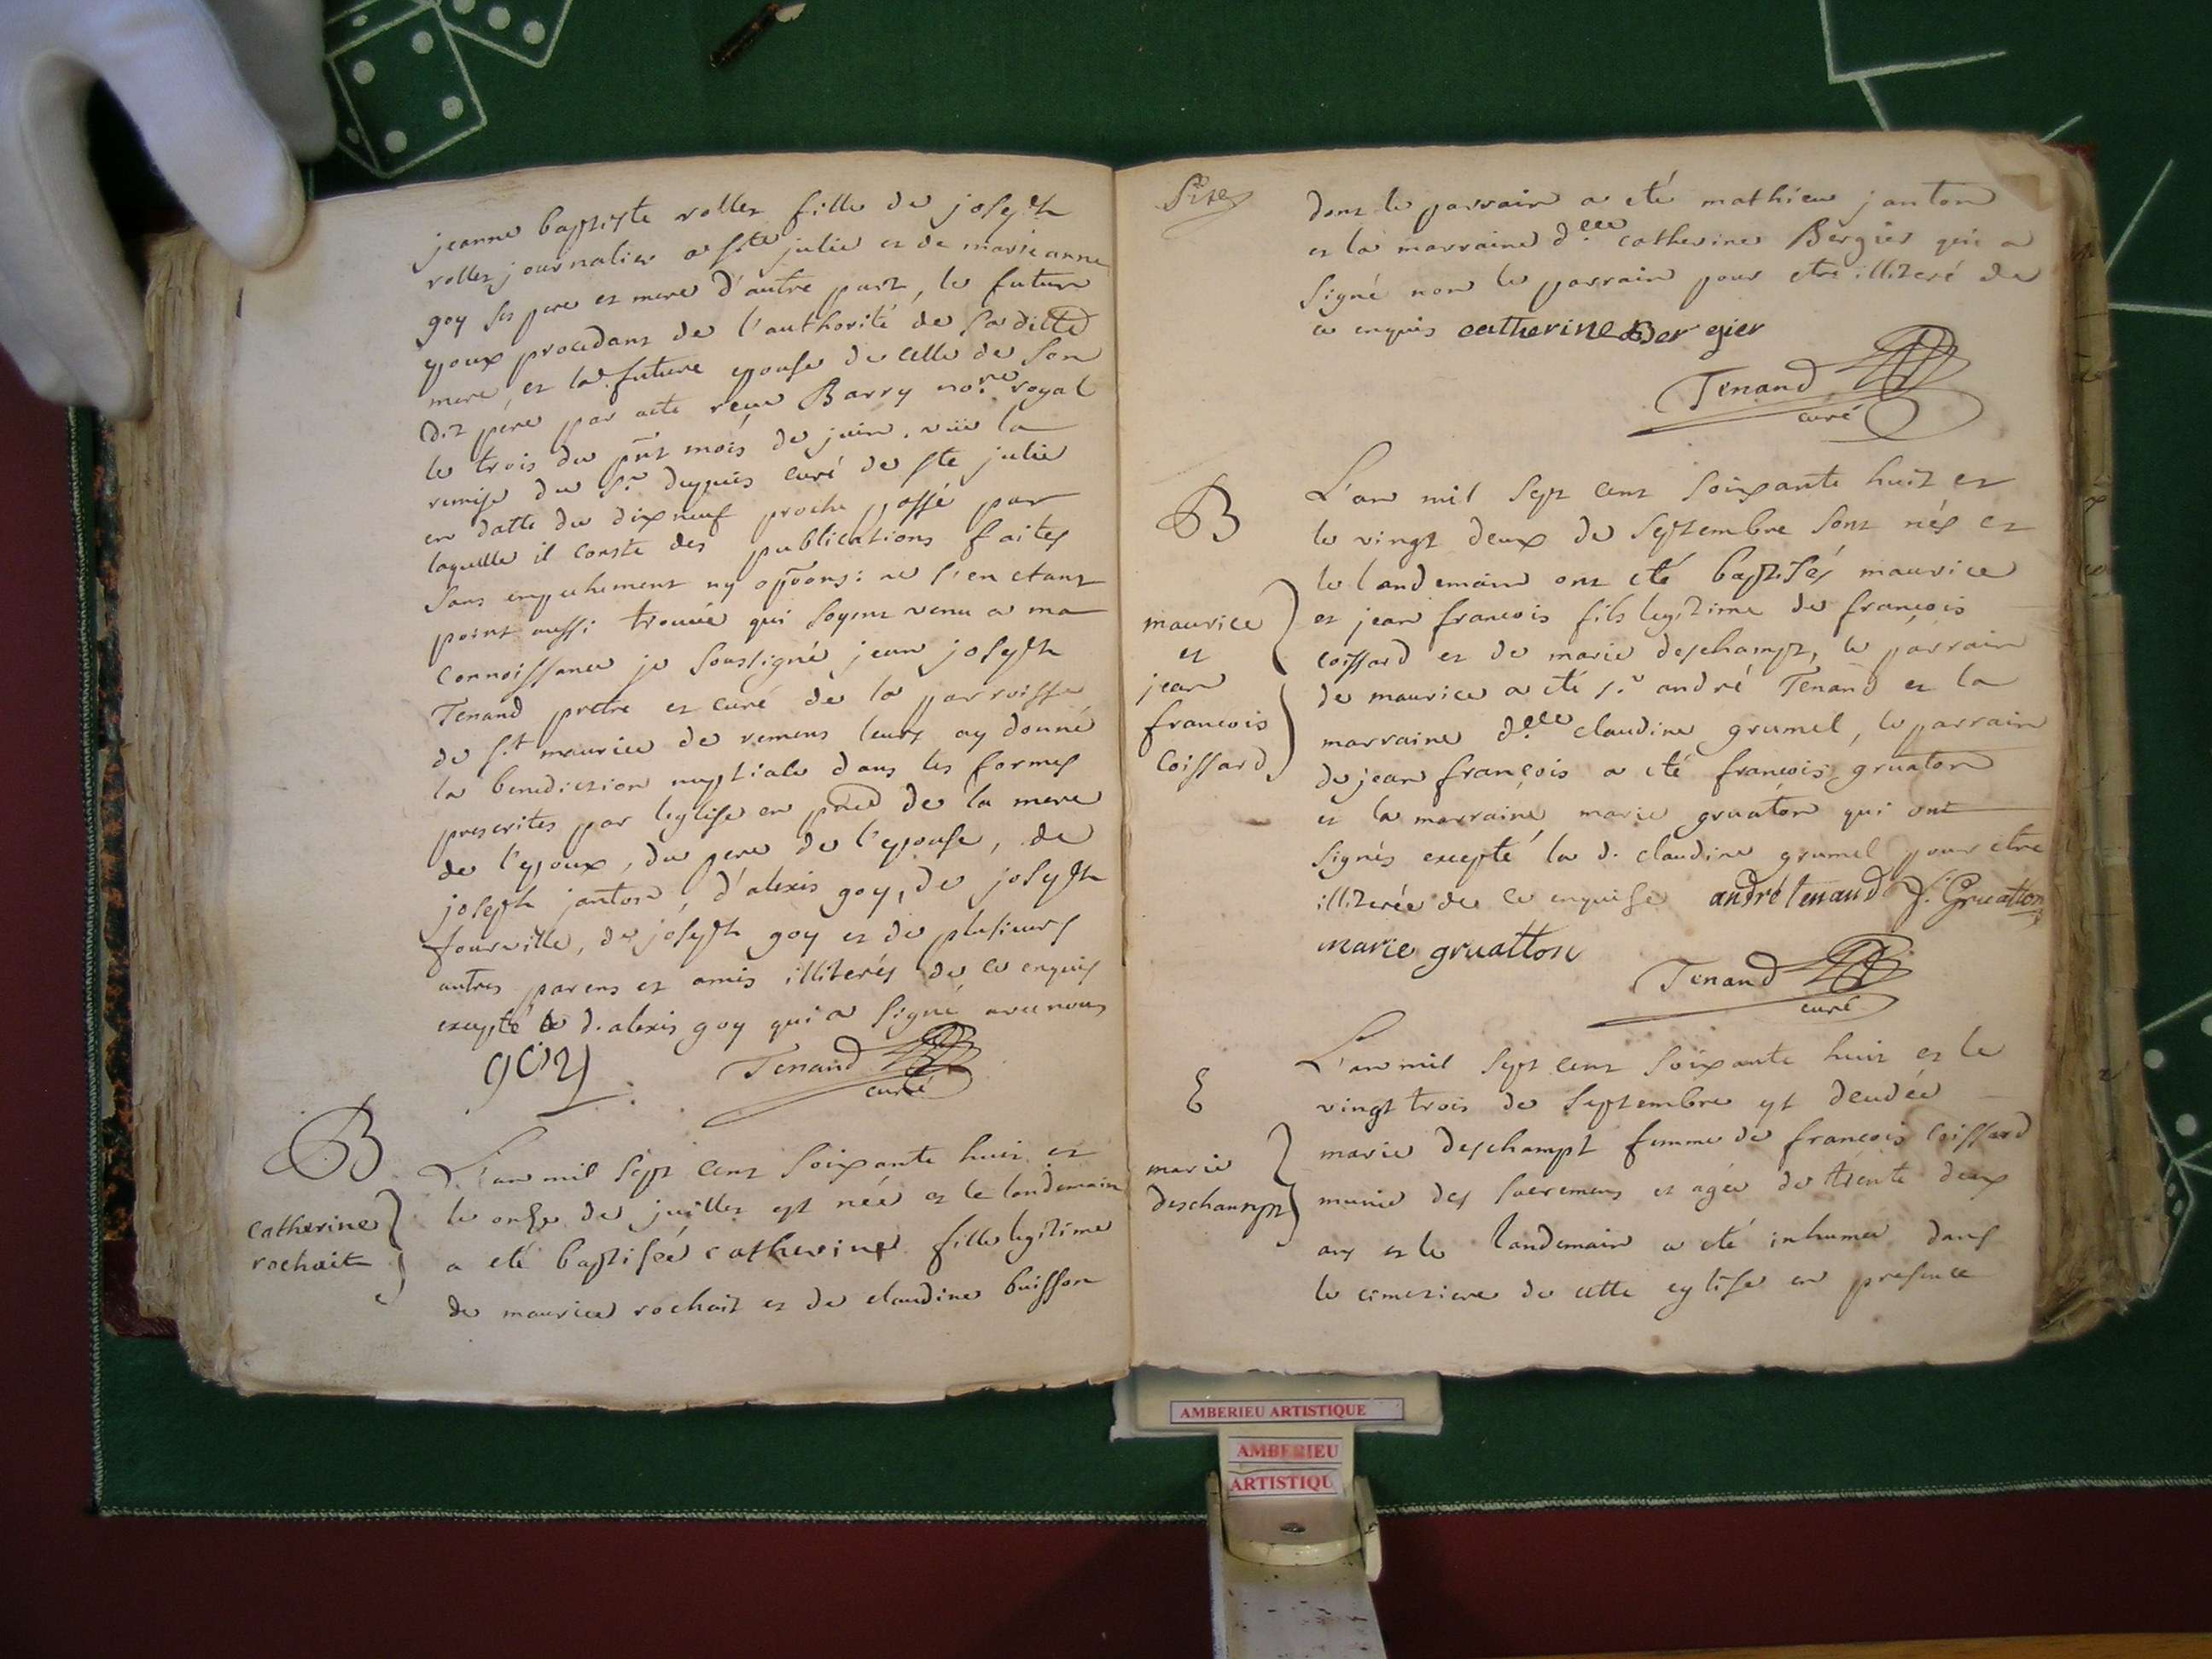 jeanne baptiste rollet fille de joseph
rollet journalier a ste julie et de marieanne
goy ses pere et mere d'autre part, le futur
epoux procedant de l'authorité de sa ditte
mere, et la future epouse de celle de son
dit pere par acte reçu Barry nore royal
le trois du pnt mois de juin. vüe la
remise du Sr dupuis curé de ste julie
en datte du dixneuf proche passé par
laquelle il conste des publications faites
sans empechement ny oppons: ne s'en etant
point aussi trouvée qui soyent venu a ma
connoissance je soussigné jean joseph
Tenand pretre et curé de la parroisse
de St maurice de remens leurs ay donné
la benediction nuptiale dans les formes
prescrites par leglise en pnce de la mere
de l'epoux, du pere de l'epouse, de
joseph janton, d'alexis goy, de joseph
fourville, de joseph goy et de plusieurs
autres parens et amis illiterés de ce enquis
excepté le d. alexis goy qui a signé avec nous
goy Tenand
curé
B
catherine
rochait
L'an mil sept cent soixante huit et
le onze de juillet est née et le landemain
a eté baptisée catherine fille legitime
de maurice rochait et de claudine buisson
dont le parrain a eté mathieu janton
et la marraine delle catherine Bergier qui a
signé non le parrain pour etre illiteré de
ce enquis catherine Bergier
Tenand
curé
B
maurice
et
jean
francois
Coissard
L'an mil sept cent soixante huit et
le vingt deux de septembre sont nés et
le landemain ont eté baptisés maurice
et jean francois fils legitime de francois
coissard et de marie deschampt, le parrain
de maurice a eté sr andré Tenand et la
marraine delle claudine grumel, le parrain
de jean françois a eté francois gruaton
et la marraine marie gruaton qui ont
signés excepté la d. claudine grumel pour etre
illiterée de ce enquise andré tenand f. Gruatton
marie gruatton
Tenand
curé
E
marie
deschampt
L'an mil sept cent soixante huit et le
vingt trois de septembre est deudée
marie deschampt femme de francois Coissard
munie des sacremens et agée de trente deux
ans et le landemain a eté inhumée dans
le cimetiere de cette eglise en presence
AMBERIEU ARTISTIQUE
AMBERIEU
ARTISTIQU